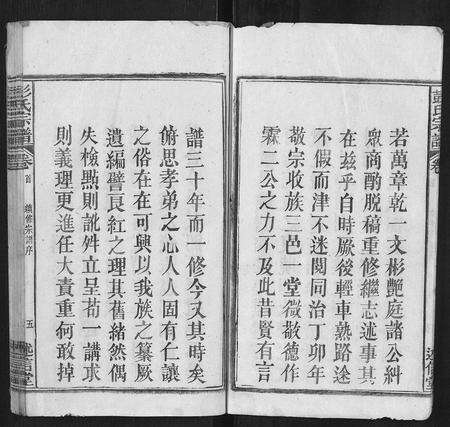 若萬章乾一文彬艷庭諸公糾
衆商酌脱稿重修繼志述事其
在茲乎自時厥後輕車熟路途
不假而津不迷閱同治丁卯年
敬宗收族三邑一堂微敬德作
霖二公之力不及此昔賢有言
譜三十年而一修今又其時矣
俯思孝弟之心人人固有仁讓
之俗在在可興以我族之纂厥
遺編譬良紅之理其舊緒然偶
失檢㸃則訛舛立呈苟一講求
則義理更進任大責重何敢掉
彭氏宗譜
卷
首
序
五
述信堂